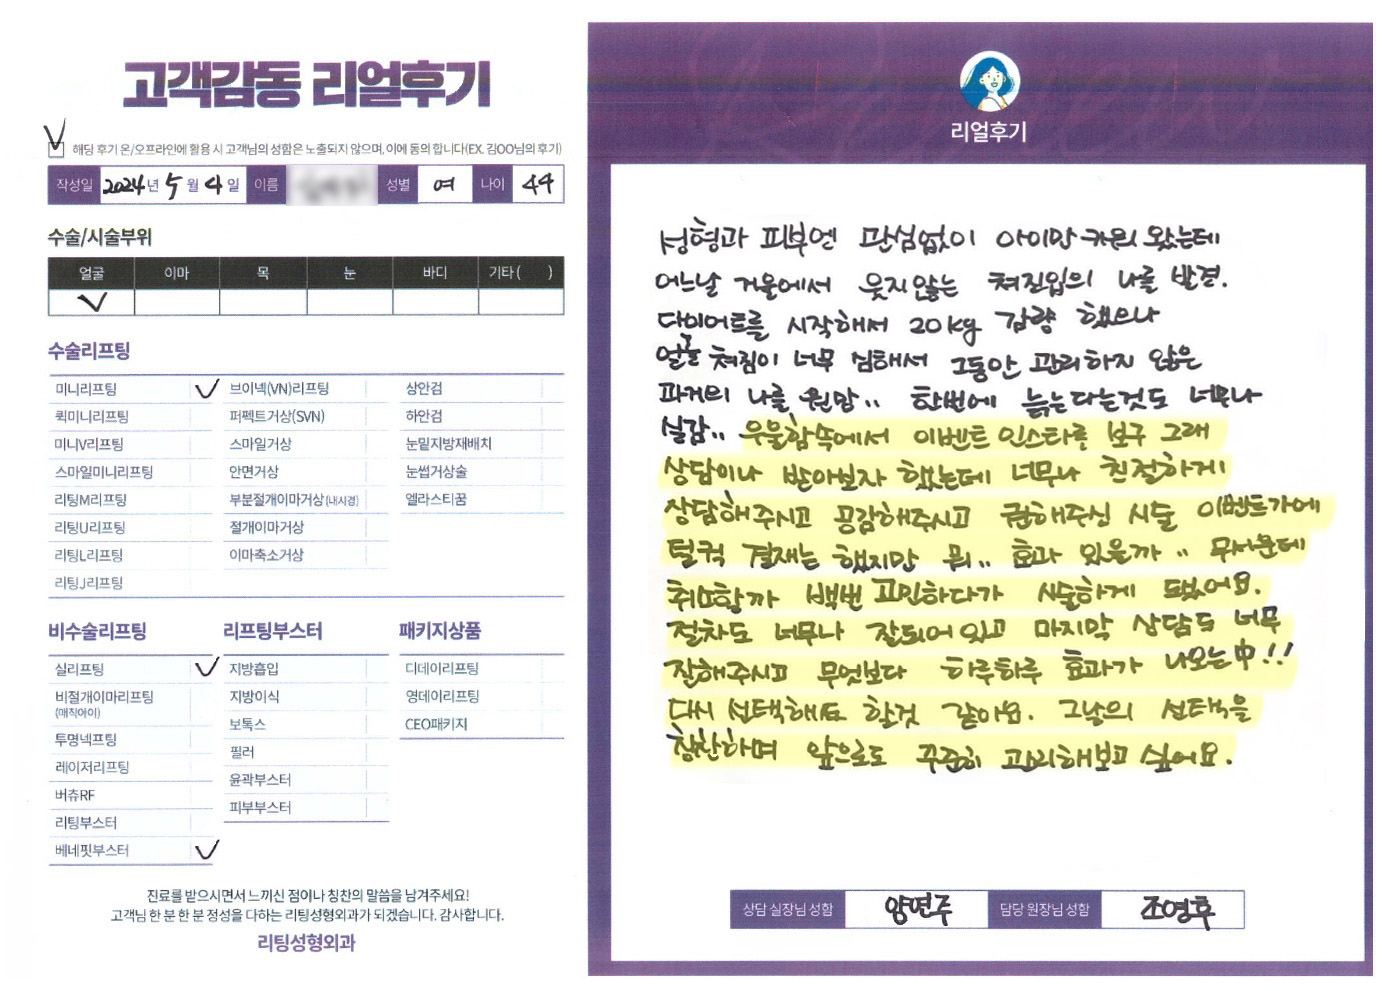 고객감동 리얼후기
해당 후기 온/오프라인에 활용 시 고객님의 성함은 노출되지 않으며, 이에 동의 합니다(EX. 김OO님의 후기)
작성일 2024년 5월 4일 이름 성별 여 나이 44
수술/시술부위
얼굴 이마 목 눈 바디 기타 ( )
수술리프팅
미니리프팅 브이넥(VN)리프팅 상안검
퀵미니리프팅 퍼펙트거상(SVN) 하안검
미니V리프팅 스마일거상 눈밑지방재배치
스마일미니리프팅 안면거상 눈썹거상술
리팅M리프팅 부분절개이마거상(내시경) 엘라스티꿈
리팅U리프팅 절개이마거상
리팅L리프팅 이마축소거상
리팅J리프팅
비수술리프팅 리프팅부스터 패키지상품
실리프팅 지방흡입 디데이리프팅
비절개이마리프팅 지방이식 영데이리프팅
(매직아이) 보톡스 CEO패키지
투명넥프팅 필러
레이저리프팅 윤곽부스터
버츄RF 피부부스터
리팅부스터
베네핏부스터
진료를 받으시면서 느끼신 점이나 칭찬의 말씀을 남겨주세요!
고객님 한 분 한 분 정성을 다하는 리팅성형외과가 되겠습니다. 감사합니다.
리팅성형외과
리얼후기
성형과 피부엔 관심없이 아이만 키워 왔는데
어느날 거울에서 웃지않는 쳐진입의 나를 발견.
다이어트를 시작해서 20kg 감량 했으나
얼굴 쳐짐이 너무 심해서 그동안 관리하지 않은
과거의 나를 원망.. 한번에 늙는다는것도 너무나
실감.. 우울함속에서 이벤트 인스타를 보구 그래
상담이나 받아보자 했는데 너무나 친절하게
상담해주시고 공감해주시고 권해주신 시술 이벤트가에
덜컥 결재는 했지만 뭐.. 효과 있을까.. 무서운데
취소할까 백번 고민하다가 시술하게 됐어요.
절차도 너무나 잘되어있고 마지막 상담도 너무
잘해주시고 무엇보다 하루하루 효과가 나오는中!!
다시 선택해도 할것 같아요. 그날의 선택을
칭찬하며 앞으로도 꾸준히 관리해보고 싶어요.
상담 실장님 성함 양연주 담당 원장님 성함 조영후